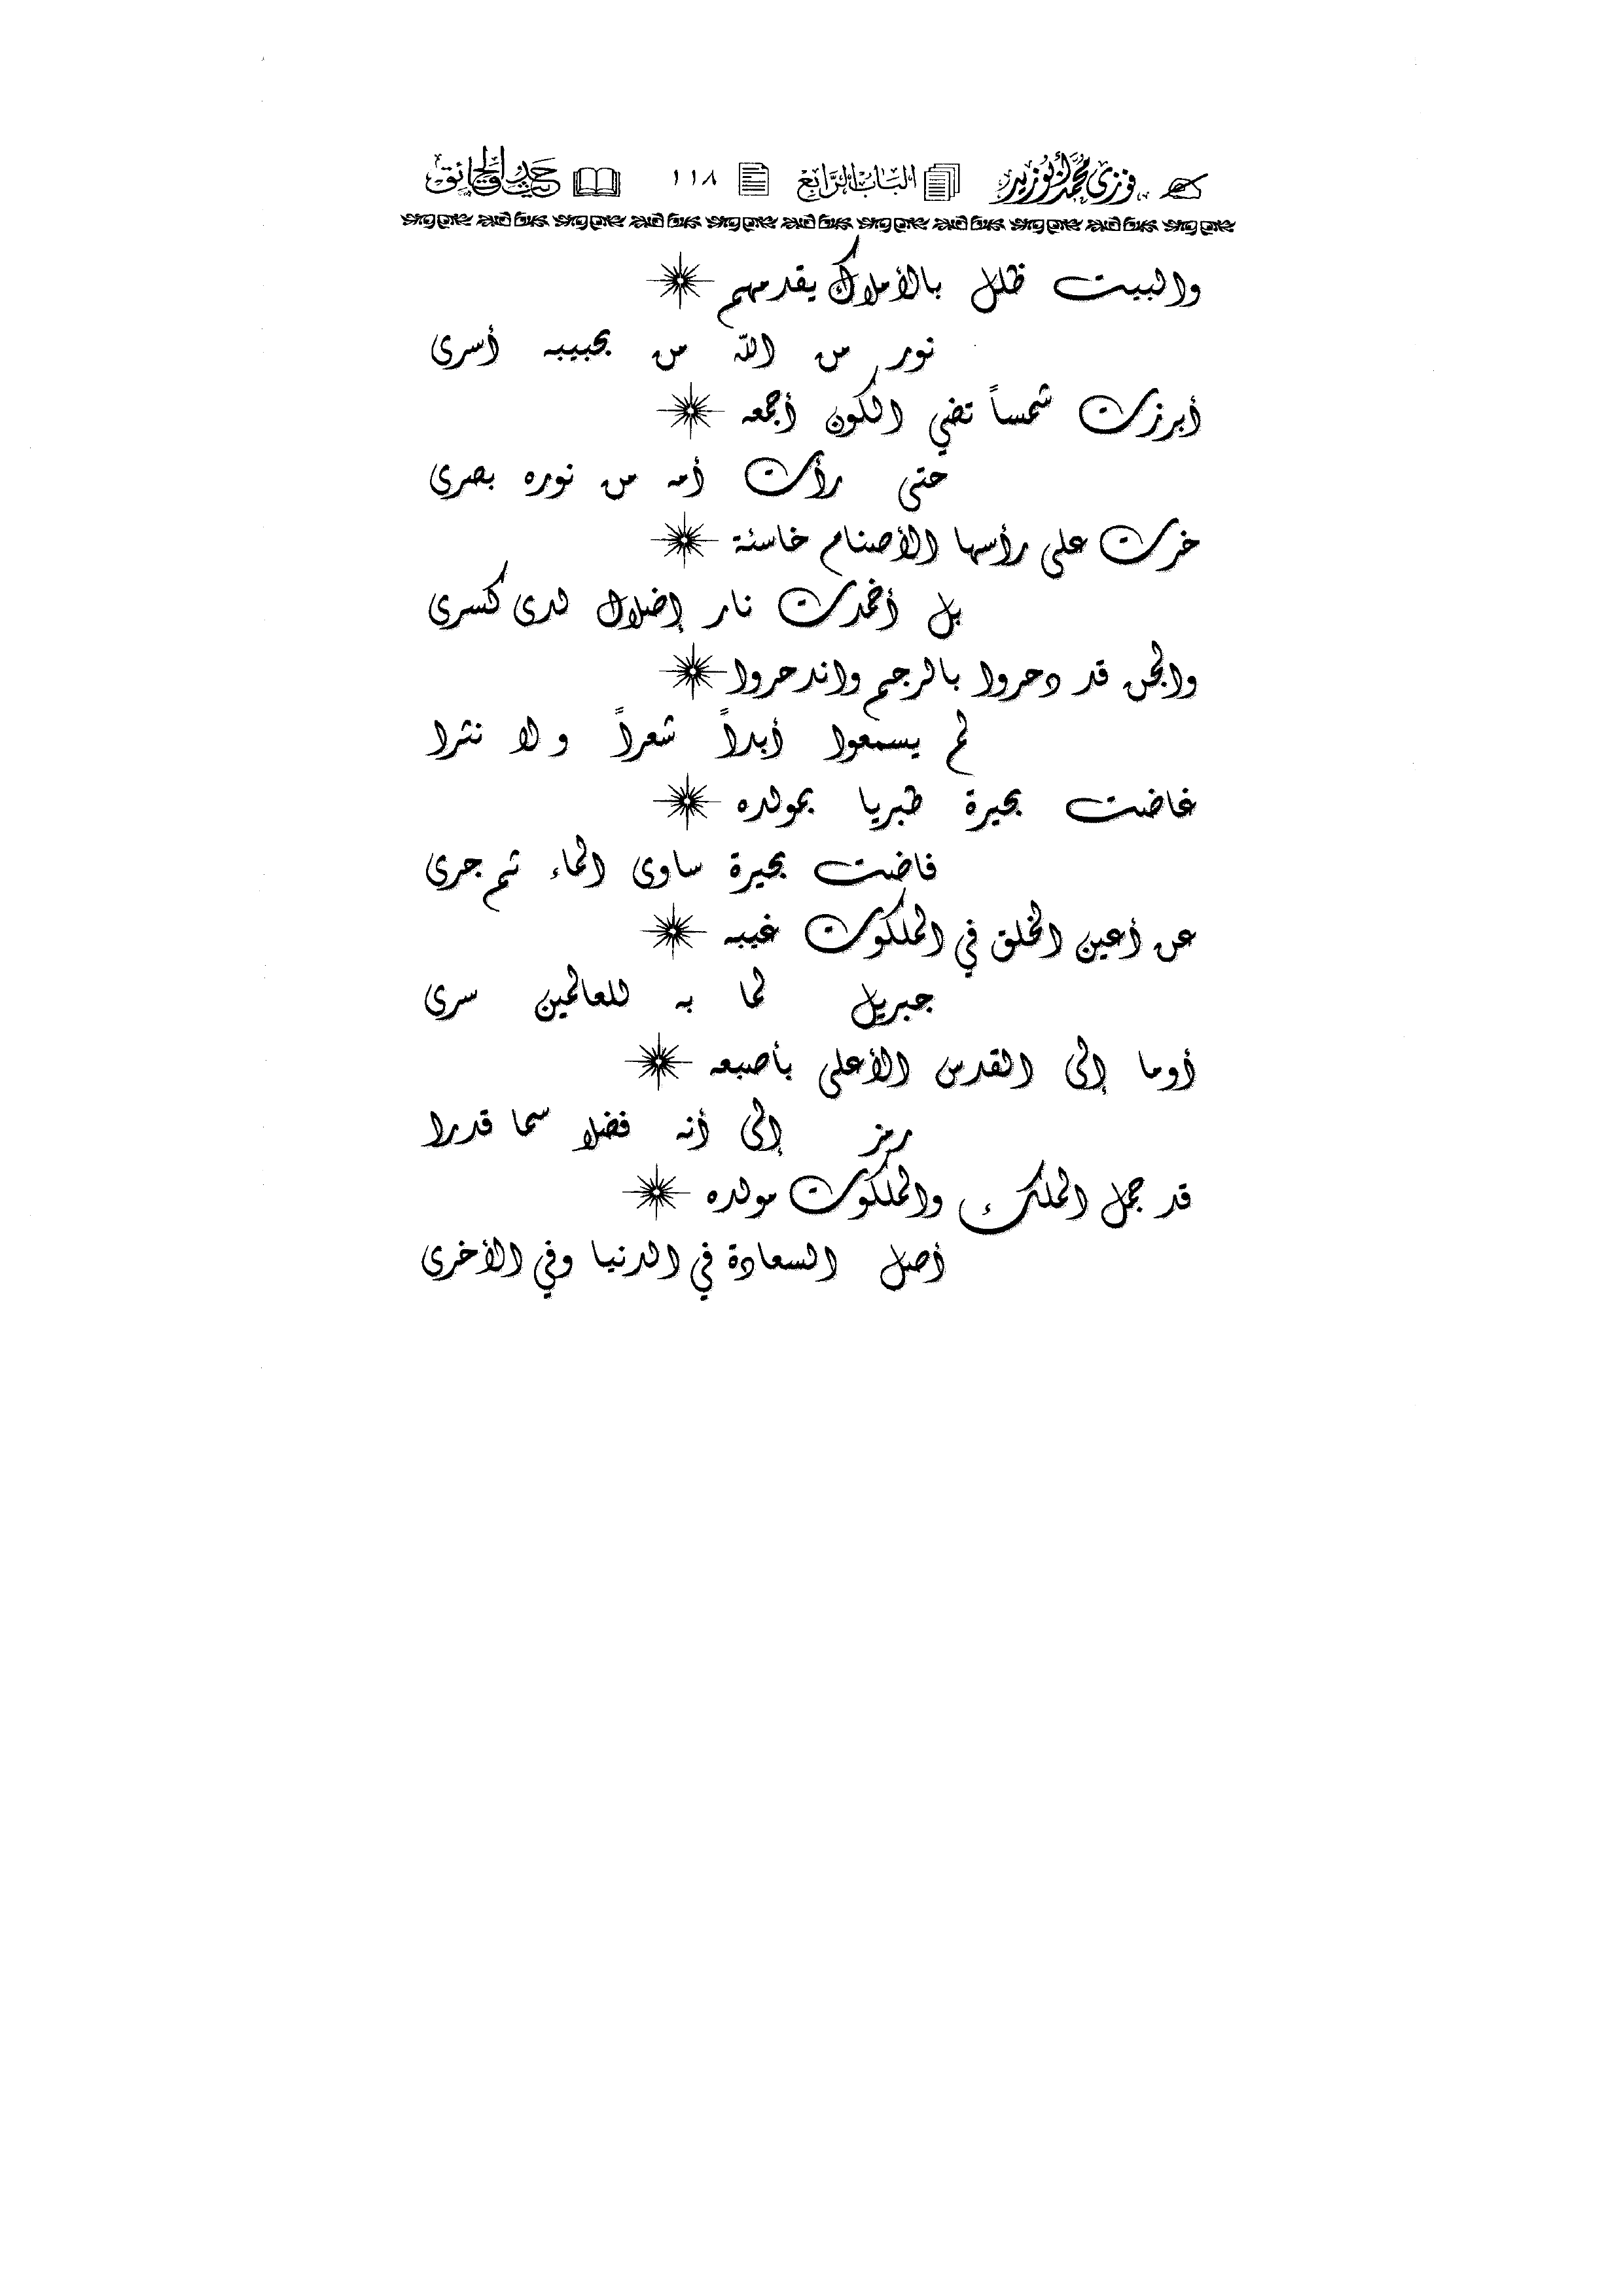 فوزى محمد أبوزيد الباب الرابع ١١٨ حدائق الحقائق
والبيت ظلل بالأملاك يقدمهم
نور من الله من بحبيبه أسرى
أبرزت شمساً تضي الكون أجمعه
حتى رأت أمه من نوره بصرى
خرت على رأسها الأصنام خاسئة
بل أخمدت نار إضلال لدى كسرى
والجن قد دحروا بالرجم واندحروا
لم يسمعوا أبداً شعراً ولا نثرا
غاضت بحيرة طبريا بمولده
فاضت بحيرة ساوى الماء ثم جرى
عن أعين الخلق في الملكوت غيبه
جبريل لما به للعالمين سرى
أوما إلى القدس الأعلى بأصبعه
رمز إلى أنه فضلا سما قدرا
قد جمل الملك والملكوت مولده
أصل السعادة في الدنيا وفي الأخرى